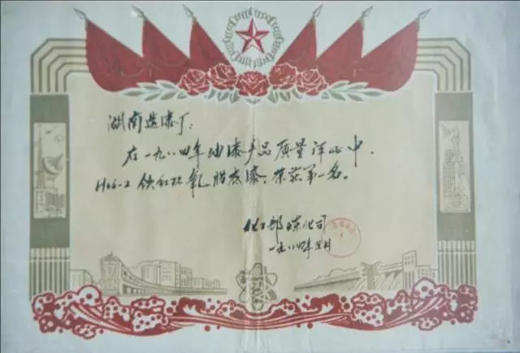 湖南造漆厂:
在一九八四年油漆产品质量评比中,
H06-2铁红环氧脂底漆,荣获第一名。
化工部炼化司
一九八四年五月